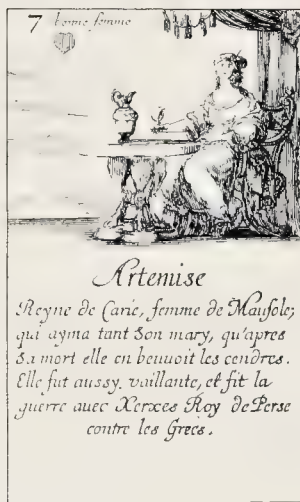 7 bonne femme
Artemise
Reyne de Carie, femme de Mausole;
qui ayma tant son mary, qu'apres
sa mort elle en beuuoit les cendres.
Elle fut aussy vaillante, et fit la
guerre avec Xerxes Roy de Perse
contre les Grecs.